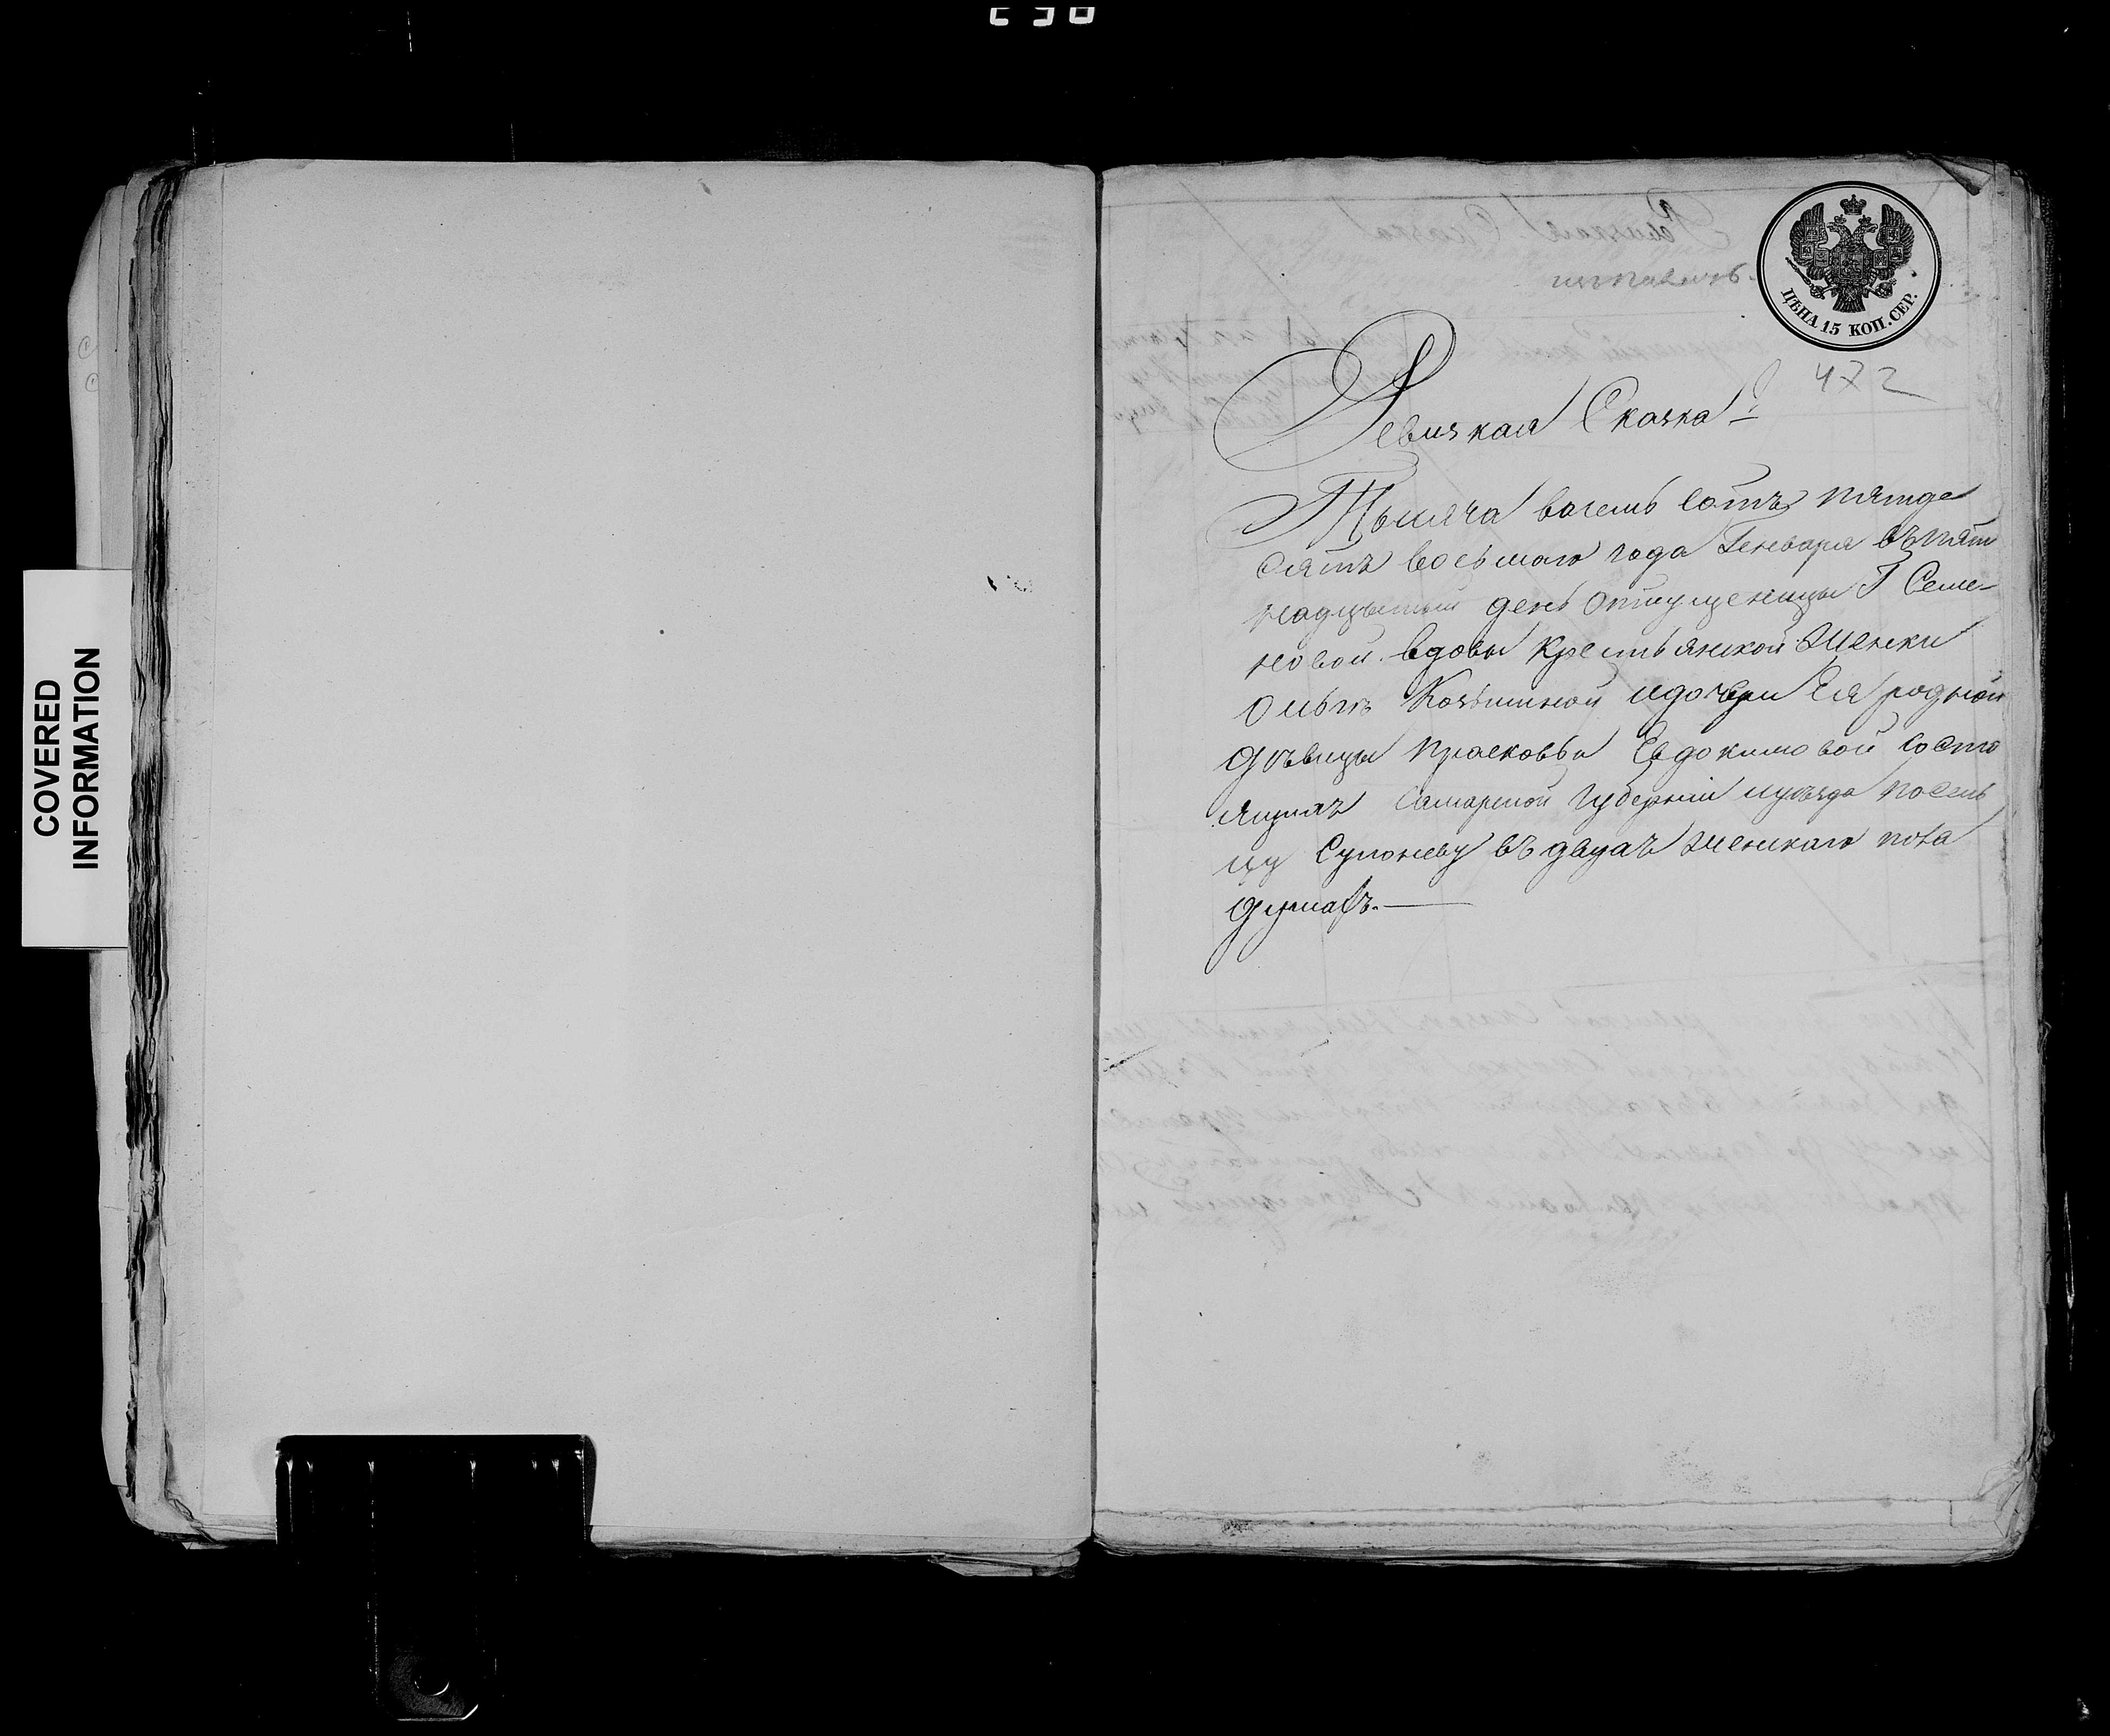 COVERED
INFORMATION
ЦѢНА 15 КОП. СЕР.
472
Ревизкая Сказка
Тысяча восемь сотъ пятде
сятъ восьмаго года Генваря въ пят
надцатый день отпущеницы Г Семе-
новой вдовы крестьянской женки
Козьминой и дочери Ея родной
дѣвицы Прасковьи Евдокимовой состо
ящихъ Самарской Губерніи и уѣзда по сель
цу Супоневу въ двухъ женскаго пола
душахъ.